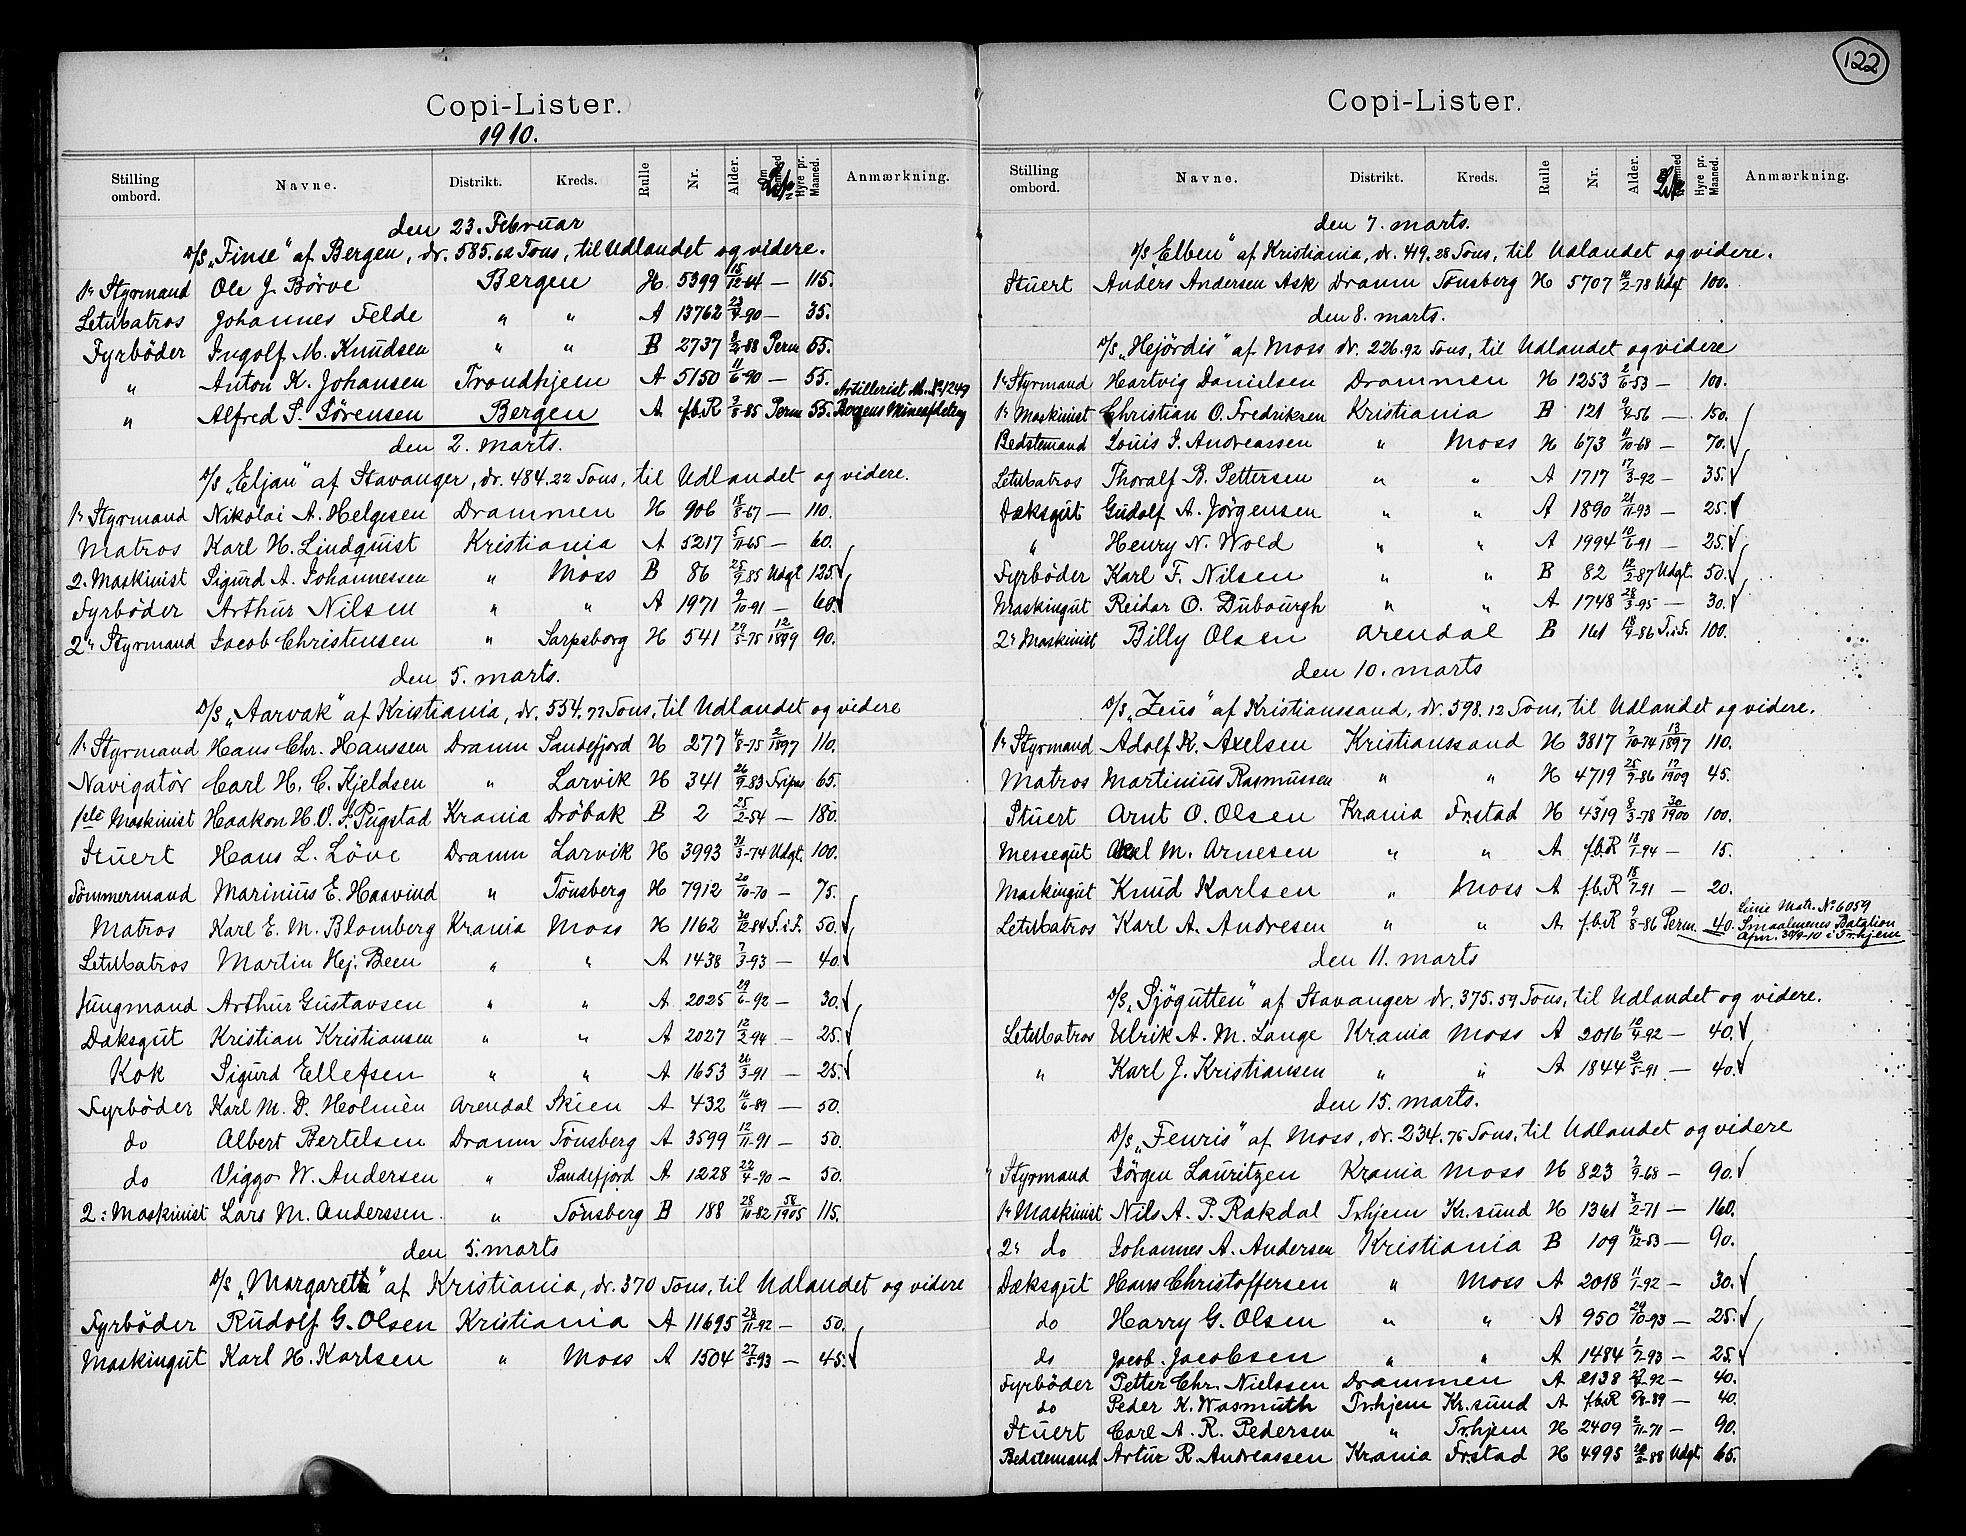 Copi-Lister.
1910.
Stilling ombord. Navne. Distrikt. Kreds. Rulle Nr. Alder. Hyre pr. Maaned. Anmærkning.
den 23. Februar
D/S „Finse" af Bergen, dr. 585.62 Tons, til Udlandet og videre.
1ste Styrmand Ole J. Börve Bergen H 5399 15/12-64 — 115.
LetMatros Johannes Felde " " A 13762 23/7-90 — 35.
Fyrböder Ingolf M. Knudsen " " B 2737 Perm 55.
" Anton K. Johansen Trondhjem A 5150 11/6-90 — 55.
" Alfred S. Sörensen Bergen A f.b.R 3/8-85 Perm 55. Artillerist No 1249 Bergens Mineafdeling
den 2. marts.
D/S „Eljan" af Stavanger, dr. 484.22 Tons, til Udlandet og videre.
1ste Styrmand Nikolai A. Helgesen Drammen H 906 18/8-67 — 110.
Matros Karl H. Lindquist Kristiania A 5217 5/11-65 — 60.
2. Maskinist Sigurd A. Johannessen " Moss B 86 25/9-85 Udgt 125.
Fyrböder Arthur Nilsen " " A 1971 9/10-91 — 60.
2n Styrmand Jacob Christensen " Sarpsborg H 541 29/5-75 12/1899 90.
den 5. marts.
D/S „Aarvak" af Kristiania, dr. 554.72 Tons, til Udlandet og videre
1ste Styrmand Hans Chr. Hanssen Dramn Sandefjord H 277 4/8-75 2/1897 110.
Navigatör Carl H. C. Kjeldsen " Larvik H 341 26/9-83 65.
1ste Maskinist Haakon H. O. S. Pugstad Krania Dröbak B 2 25/2-54 — 180.
Stuert Hans L. Löve Dramn Larvik H 3993 21/3-74 Udgt. 100.
Tömmermand Marinius E. Haavind " Tönsberg H 7912 20/10-70 — 75.
Matros Karl E. M. Blomberg Krania Moss H 1162 30/12-84 T.i.S. 50.
LetMatros Martin Hej. Been " " A 1438 7/3-93 — 40.
Jungmand Arthur Gustavsen " " A 2025 29/6-92 — 30.
Dæksgut Kristian Kristiansen " " A 2027 12/2-94 — 25.
Kok Sigurd Ellefsen " " A 1653 26/3-91 — 25.
Fyrböder Karl M. D. Holmèn Arendal Skien A 432 16/6-89 — 50.
do Albert Bertelsen Dramn Tönsberg A 3599 12/11-91 — 50.
do Viggo W. Andersen " Sandefjord A 1228 22/4-90 — 50.
2: Maskinist Lars M. Anderssen. " Tönsberg B 188 28/10-82 58/1905 115.
den 5. marts
D/S „Margareth" af Kristiania, dr. 370 Tons, til Udlandet og videre
Fyrböder Rudolf G. Olsen Kristiania A 11695 28/11-92 — 50.
Maskingut Karl H. Karlsen " Moss A 1504 27/5-93 — 45.
122
Copi-Lister.
Stilling ombord. Navne. Distrikt. Kreds. Rulle Nr. Alder. Hyre pr. Maaned. Anmærkning.
den 7. marts.
D/S „Elben" af Kristiania, dr. 419.28 Tons, til Udlandet og videre.
Stuert Anders Andersen Ask Dramn Tönsberg H 5707 10/2-78 Udgt 100.
den 8. marts.
D/S „Hejördis" af Moss dr. 226.92 Tons, til Udlandet og videre
1ste Styrmand Hartvig Danielsen Drammen H 1253 2/6-53 — 100.
1ste Maskinist Christian O. Fredriksen Kristiania B 121 9/4-56 — 150.
Bedstemand Louis J. Andreassen " Moss H 673 11/10-68 — 70.
LetMatros Thoralf B. Pettersen " " A 1717 17/3-92 — 35.
Dæksgut Gudolf A. Jörgensen " " A 1890 21/11-93 — 25.
" Henry N. Wold " " A 1994 10/6-91 — 25.
Fyrböder Karl F. Nilsen " " B 82 12/2-87 Udgt. 50.
Maskingut Reidar O. Dubourgh " " A 1748 28/3-95 — 30.
2n Maskinist Billy Olsen Arendal B 161 18/9-86 T.i.S. 100.
den 10. marts
D/S „Zeus" af Kristianssand, dr. 598.12 Tons, til Udlandet og videre.
1ste Styrmand Adolf K. Axelsen Kristianssand H 3817 7/10-74 13/1897 110.
Matros Martinius Rasmussen " " H 4719 25/9-86 17/1909 45.
Stuert Arnt O. Olsen Krania Fr.stad H 4319 8/3-78 30/1900 100.
Messegut Axel M. Arnesen " " A f.b.R 18/1-94 — 15.
Maskingut Knud Karlsen " Moss A f.b.R 18/7-91 — 20.
LetMatros Karl A. Andresen " " A f.b.R 9/8-86 Perm 40. Linie Matr. No 6059 Smaalenenes Bataljon Afm. 30/9-10 i Tr.hjem
den 11. marts
D/S „Sjögutten" af Stavanger dr. 375.59 Tons, til Udlandet og videre.
LetMatros Ulrik A. M. Lange Krania Moss A 2016 10/4-92 — 40.
" Karl J. Kristiansen " " A 1844 2/5-91 — 40.
den 15. marts.
D/S „Fenris" af Moss, dr. 234.75 Tons, til Udlandet og videre
Styrmand Jörgen Lauritzen Krania Moss H 823 7/9-68 — 90.
1ste Maskinist Nils A. P. Rakdal Tr.hjem Kr.sund H 1361 3/2-71 — 160.
2n do Johannes A. Andersen Kristiania B 109 14/12-53 — 90.
Dæksgut Hans Christoffersen " Moss A 2018 11/1-92 — 30.
do Harry G. Olsen " " A 950 29/10-93 — 25.
do Jacob Jacobsen " " A 1484 1/7-93 — 25.
Fyrböder Petter Chr. Nielssen Drammen A 2138 — 40.
do Peder K. Wasmuth Tr.hjem Kr.sund A f.b.R — 40.
Stuert Carl A. R. Pedersen " Tr.hjem H 2409 2/11-71 — 90.
Bedstemand Artur R. Andreassen Krania Fr.stad H 4995 Udgt. 65.